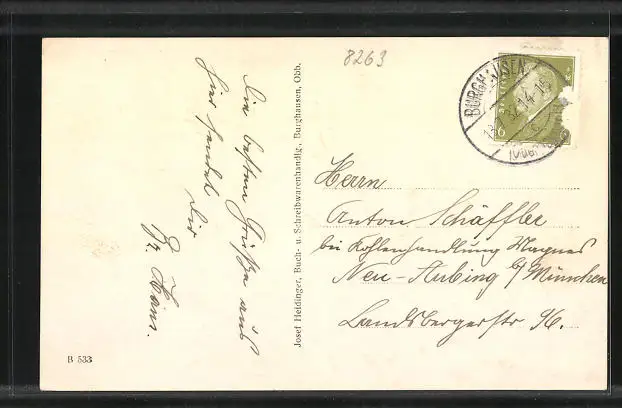 8263
Die besten Grüße aus
hier sendet Dir
Fr. Hans.
B 533
Josef Heldinger, Buch- u. Schreibwarenhandlg., Burghausen, Obb.
BURGHAUSEN
6
Herrn
Anton Schäffler
bei Kohlenhandlung Magnus
Neu-Aubing b/München
Landsbergerstr 96.